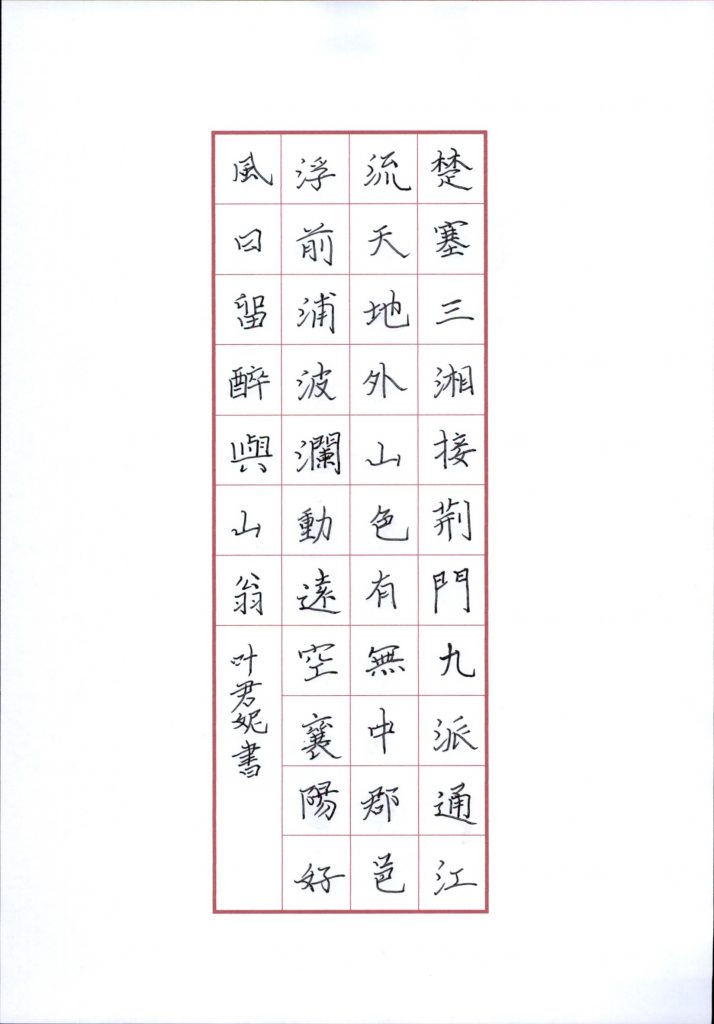 楚塞三湘接荆門九派通江
流天地外山色有無中郡邑
浮前浦波瀾動遠空襄陽好
風日留醉與山翁
叶君妮書